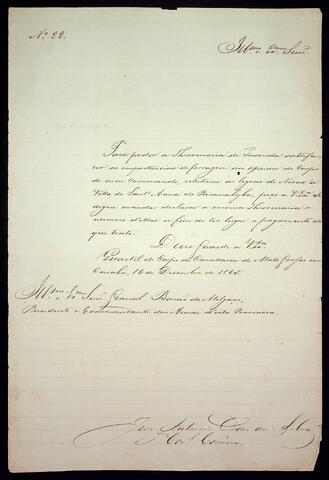 Nº 22.
Illmo. Exmo. Senr.
Para poder a Thesouraria de Fazenda satisfa-
zer as importancias de forragem aos do Corpo
de meu Commando, relativas as legoas de Nioac a
Villa de Sant'Anna do Paranahyba, peço a V. Exa. Se
digne mandar declarar a mesma Thesouraria o
numero d'ellas a fim de ter lugar o pagamento de
que trato.
Deos Guarde a V. Exa.
Quartel do Corpo de Cavallaria de Mato Grosso em
Cuiabá, 16 de Dezembro de 1865.
Illmo. Exmo. Senr. General Barão de Melgaço
Presidente e Commandante das Armas desta Provincia.
José Antonio Dias da Sª
Tº Corel. Comm.